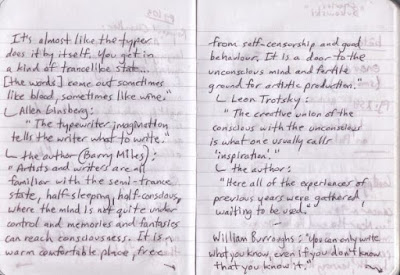 It's almost like the typer
does it by itself. You get in
a kind of trancelike state...
[the words] come out sometimes
like blood, sometimes like wine."
↳ Allen Ginsberg:
"The typewriter imagination
tells the writer what to write."
↳ the author (Barry Miles):
"Artists and writers are all
familiar with the semi-trance
state, half-sleeping, half-conscious,
where the mind is not quite under
control and memories and fantasies
can reach consciousness. It is a
warm comfortable place, free
from self-censorship and good
behaviour. It is a door to the
unconscious mind and fertile
ground for artistic production."
↳ Leon Trotsky:
"The creative union of the
conscious with the unconscious
is what one usually calls
'inspiration.'"
↳ the author:
"Here all of the experiences of
previous years were gathered,
waiting to be used."
William Burroughs: "You can only write
what you know, even if you don't know
that you know it."